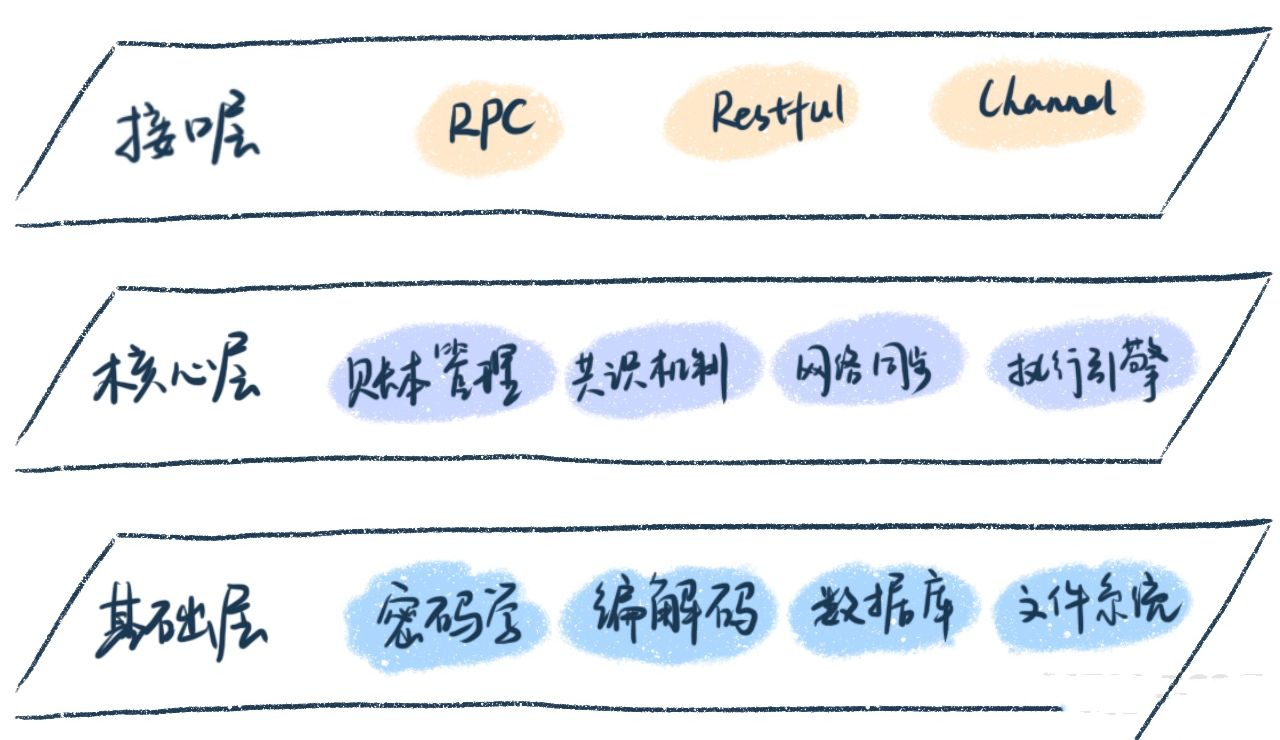 接口层 RPC Restful Channel
核心层 账本管理 共识机制 网络同步 执行引擎
基础层 密码学 编解码 数据库 文件系统